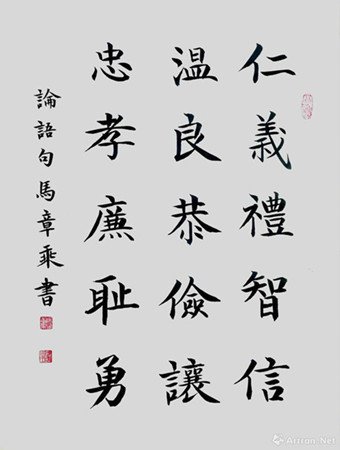 仁義禮智信
溫良恭儉讓
忠孝廉恥勇
論語句馬章乘書
Artron.Net